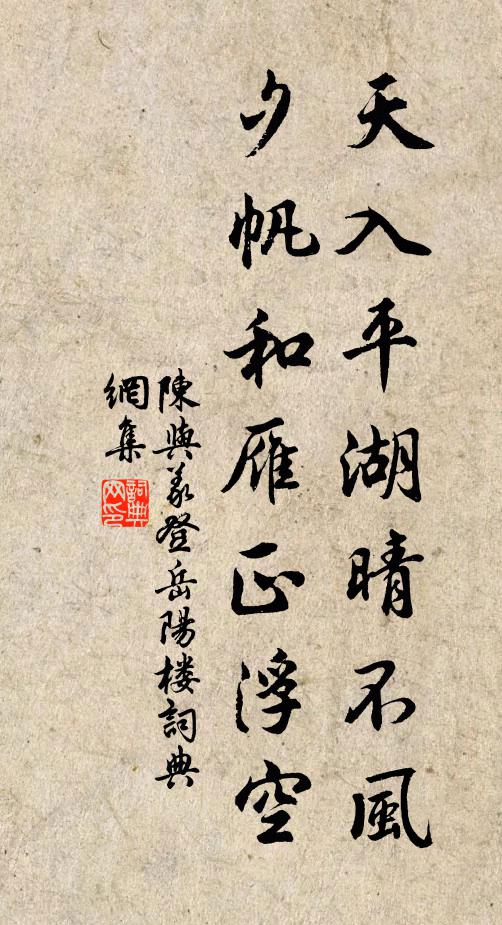 天入平湖晴不風
夕帆和雁正浮空
陳與義登岳陽楼詞典
網集
詞典網印